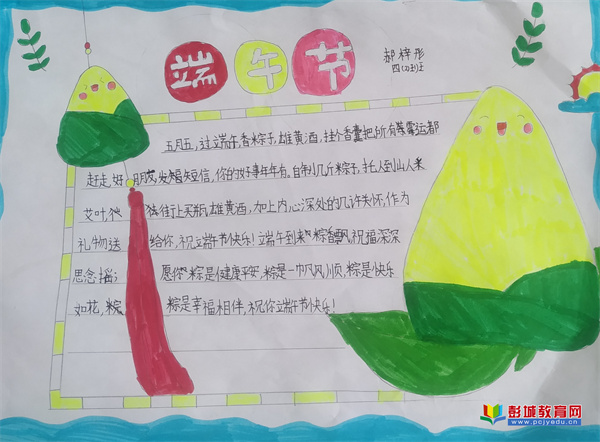 端午节
郝梓彤
四(五)班
五月五,过端午,香粽子,雄黄酒,挂个香囊把所有霉运都
赶走,好朋友,发短信,你的好事年年有。自制几斤粽子,托人到山人采
艾叶,独独往让买瓶雄黄酒,加上内心深处的几许失怀,作为
礼物送给你,祝端节快乐!端午到来粽香飘,祝福深深
思念摇;愿你"粽是健康平安,粽是一帆风顺,粽是快乐
如花,粽粽是幸福相伴,祝你端午节快乐!
彭城教育网
www.pcjyedu.cn